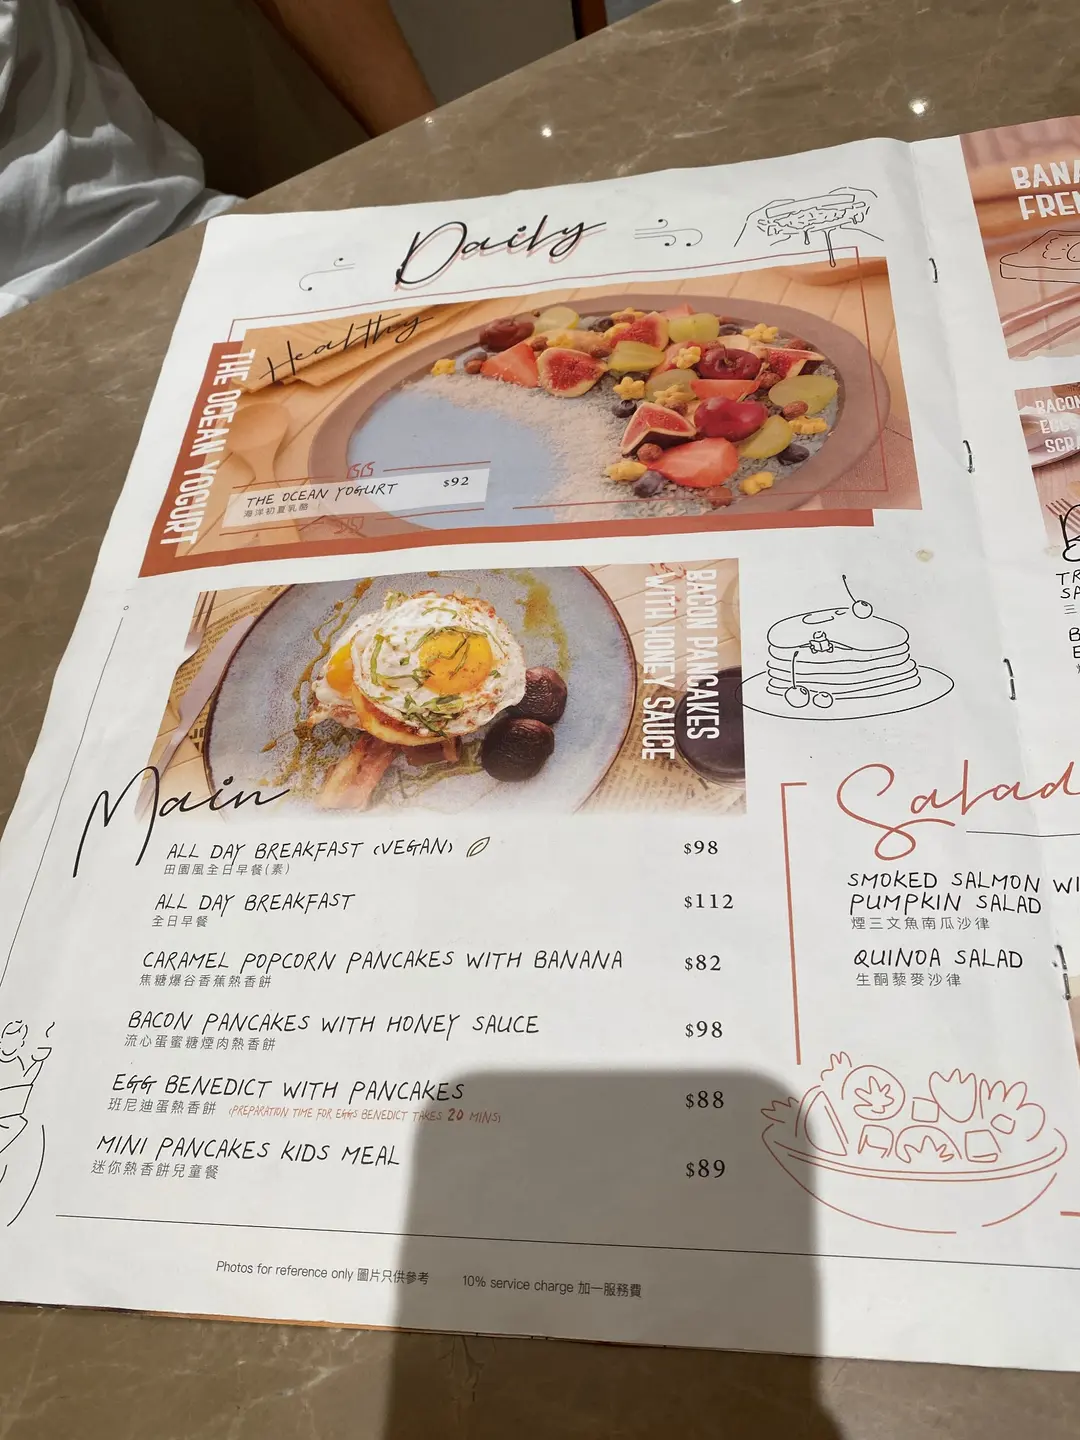 Daily
Healthy
THE OCEAN YOGURT
THE OCEAN YOGURT $92
海洋初夏乳酪
BACON PANCAKES
WITH HONEY SAUCE
Main
ALL DAY BREAKFAST (VEGAN) $98
田園風全日早餐(素)
ALL DAY BREAKFAST $112
全日早餐
CARAMEL POPCORN PANCAKES WITH BANANA $82
焦糖爆谷香蕉熱香餅
BACON PANCAKES WITH HONEY SAUCE $98
流心蛋蜜糖煙肉熱香餅
EGG BENEDICT WITH PANCAKES $88
班尼迪蛋熱香餅 (PREPARATION TIME FOR EGGS BENEDICT TAKES 20 MINS)
MINI PANCAKES KIDS MEAL $89
迷你熱香餅兒童餐
Photos for reference only 圖片只供參考 10% service charge 加一服務費
Salad
SMOKED SALMON WI
PUMPKIN SALAD
煙三文魚南瓜沙律
QUINOA SALAD
生酮藜麥沙律
BANA
FRE
BACON
EGG
SCR
TR
SA
三
B
E